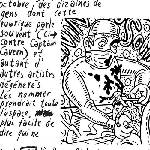 octobre, des dizaines de
gens dont cette
souvent (Cli
contre Captain
Cavern) et
autant d'
autres artistes
dégénérés
les nommer
prendrait toute
l'espace,
plus facile de
dire qu'ine